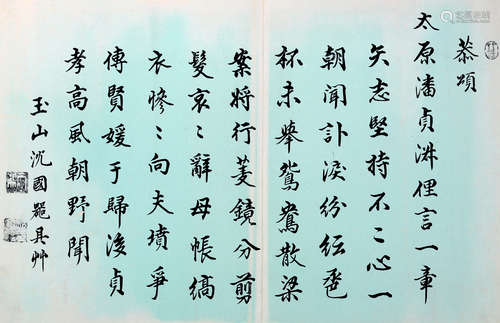 恭頌
太原潘貞洙俚言一章
矢志堅持不二心一
朝聞訃淚紛紜巹
杯未舉鴛鴦散梁
案將行菱鏡分剪
髮哀〻辭母帳縞
衣慘〻向夫墳爭
傳賢媛于歸後貞
孝高風朝野聞
玉山沈國器具艸